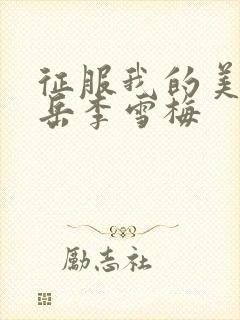 征服我的美
岳李雪梅
励志社